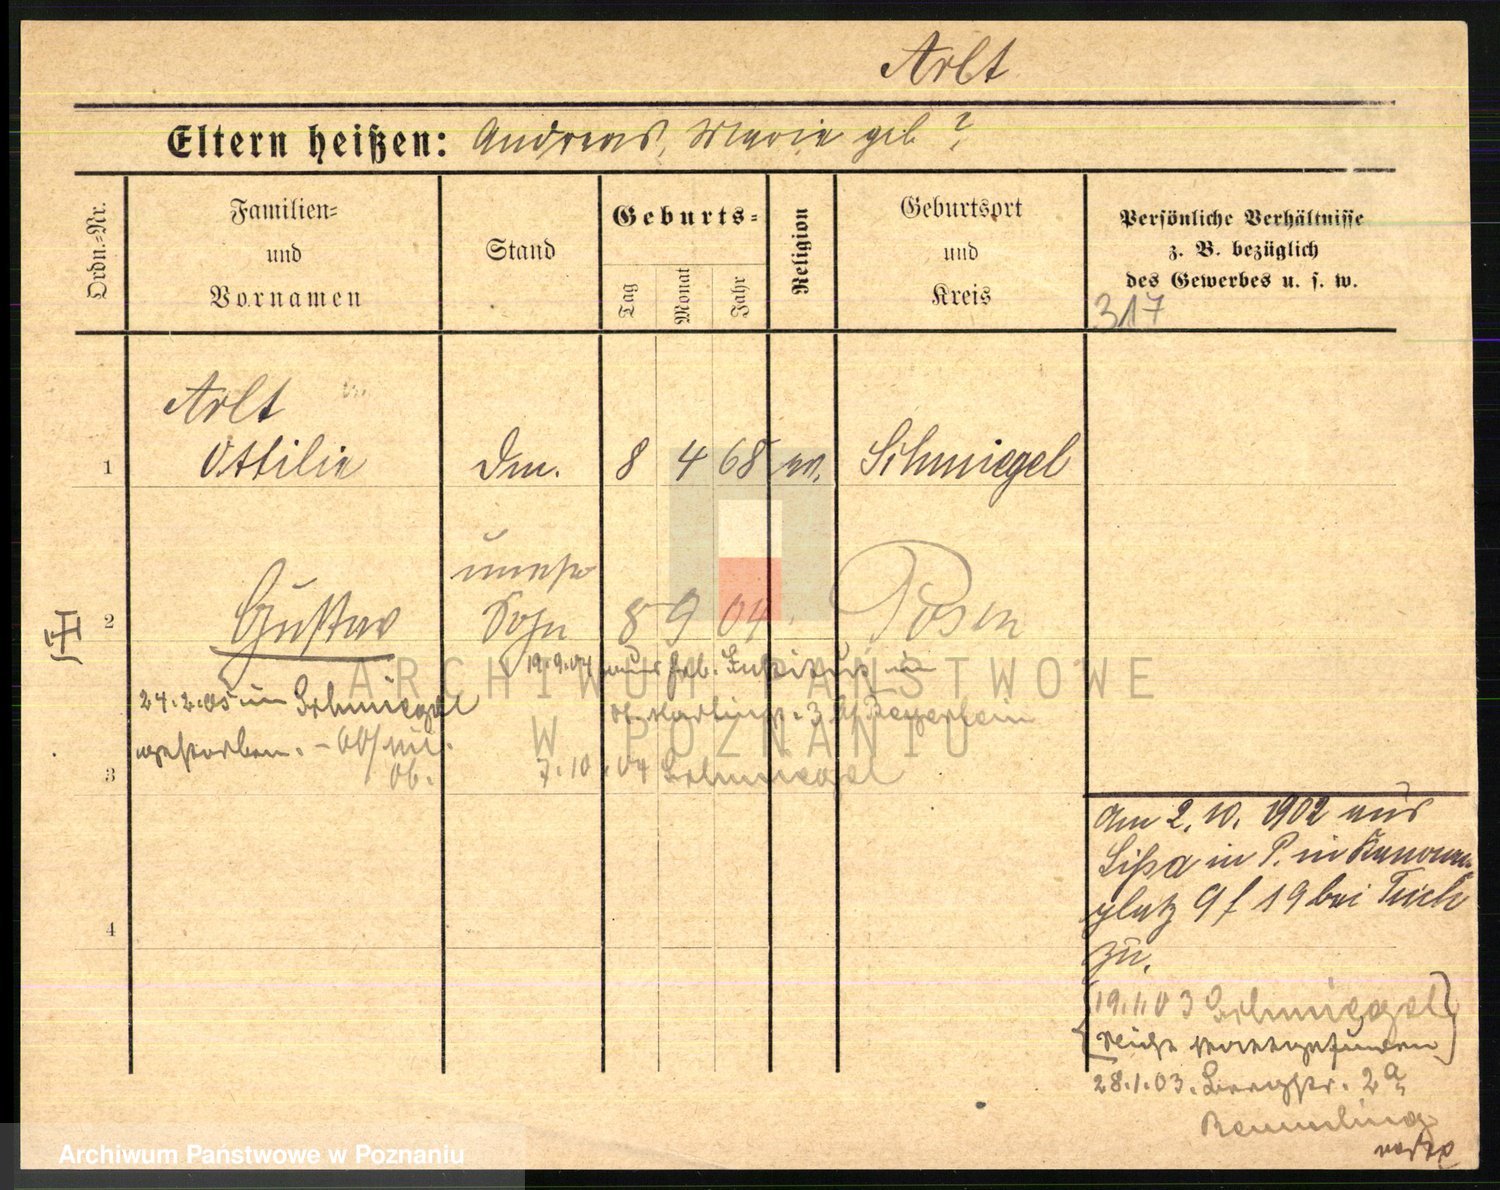 Arlt
Eltern heißen: Andreas, Marie geb ?
Ordn.=Nr.
Familien=
und
Vornamen
Stand
Geburts=
Tag
Monat
Jahr
Religion
Geburtsort
und
Kreis
Persönliche Verhältnisse
z. B. bezüglich
des Gewerbes u. s. w.
317
Arlt
1 Ottilie Dm. 8 4 68 ev. Schmiegel
unehe
2 Gustav Sohn 8 9 04 Posen
19.9.04 aus Heb. Institut in
24.2.05 in Schmiegel
St. Martinstr. 3 Beyerlein
gestorben.
3 7.10.04 Schmiegel
4
Am 2. 10. 1902 aus
Lissa in P. in Kanonen
platz 9 f 19 bei Tuch
zu.
19.1.03 Schmiegel
nicht stattgefunden
28.1.03. Bergstr. 2a
Remmling
ARCHIWUM PAŃSTWOWE
W POZNANIU
Archiwum Państwowe w Poznaniu